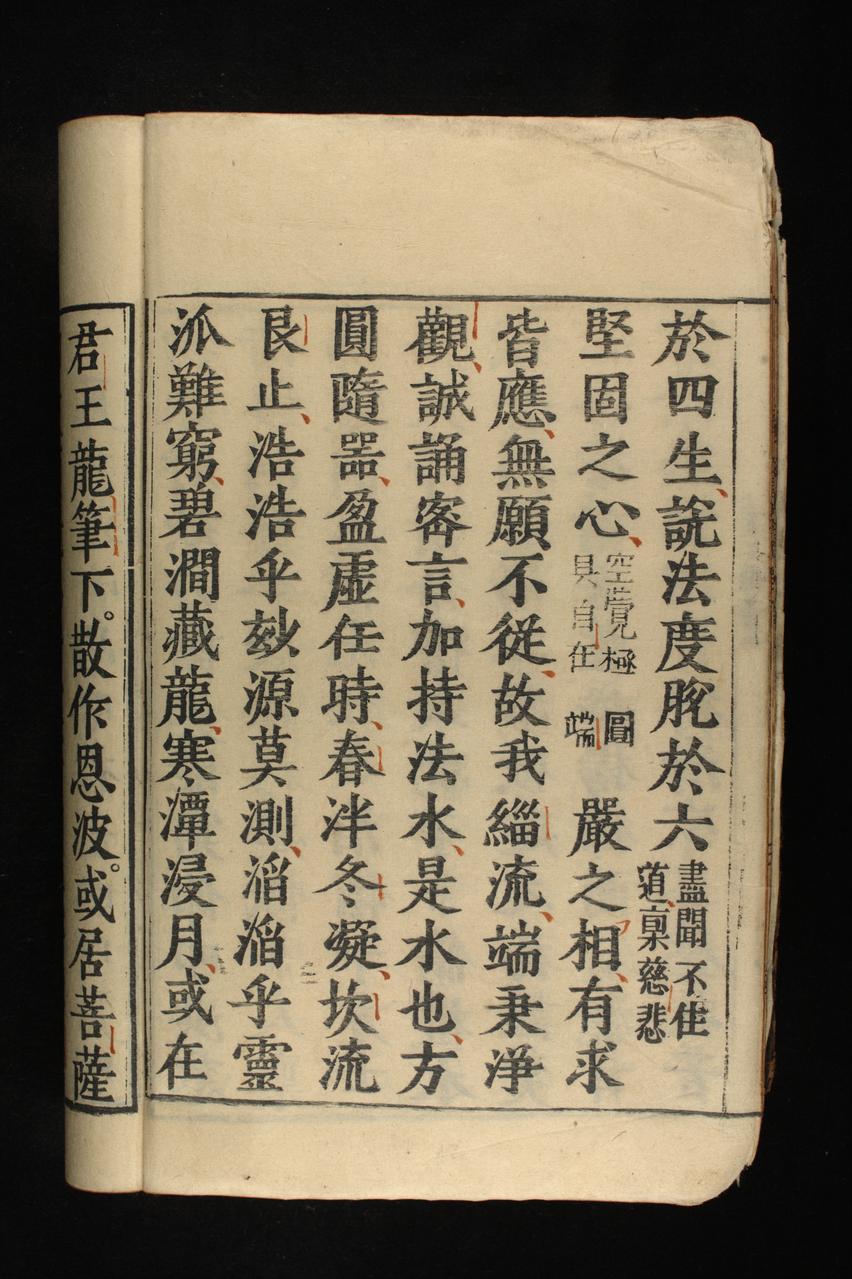 於四生說法度脫於六盡聞不住道稟慈悲
堅固之心空覺極圓具自在端嚴之相有求
皆應無願不從故我緇流端秉淨
觀誠誦密言加持法水是水也方
圓隨器盈虛任時春泮冬凝坎流
艮止浩浩乎玅源莫測滔滔乎靈
派難窮碧澗藏龍寒潭浸月或在
君王龍筆下。散作恩波。或居菩薩